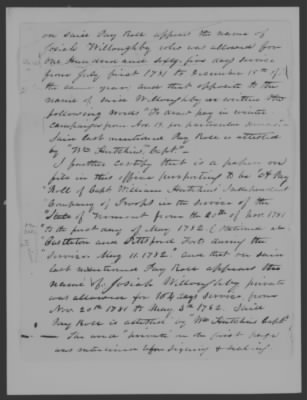 on said Pay Roll appears the name of
Josiah Willoughby who was allowed for
one hundred and sixty five days service
from July first 1781 to December 15th of
the same year and that opposite to the
name of said Willoughby is written the
following words "To dra't pay in winter
campaign from Nov. 19. for particular
Said last mentioned Pay Roll is attested
by "Wm Hutchins Capt."
I further certify that is a paper on
file in this office purporting to be "A Pay
Roll of Capt. William Hutchins' Independent
Company of Troops in the service of the
State of Vermont from the 20th of Nov. 1781
to the first day of May 1782. (Stationed at
Castleton and Pittsford Forts during the
Service May 11. 1782." and that on said
last mentioned Pay Roll appears the
name of Josiah Willoughby private
was allowance for 164 days service from
Nov. 20th 1781 to May 3d 1782. Said
Pay Roll is attested by "Wm Hutchins Capt."
The word "private" on the first page
was interlined before signing & sealing.